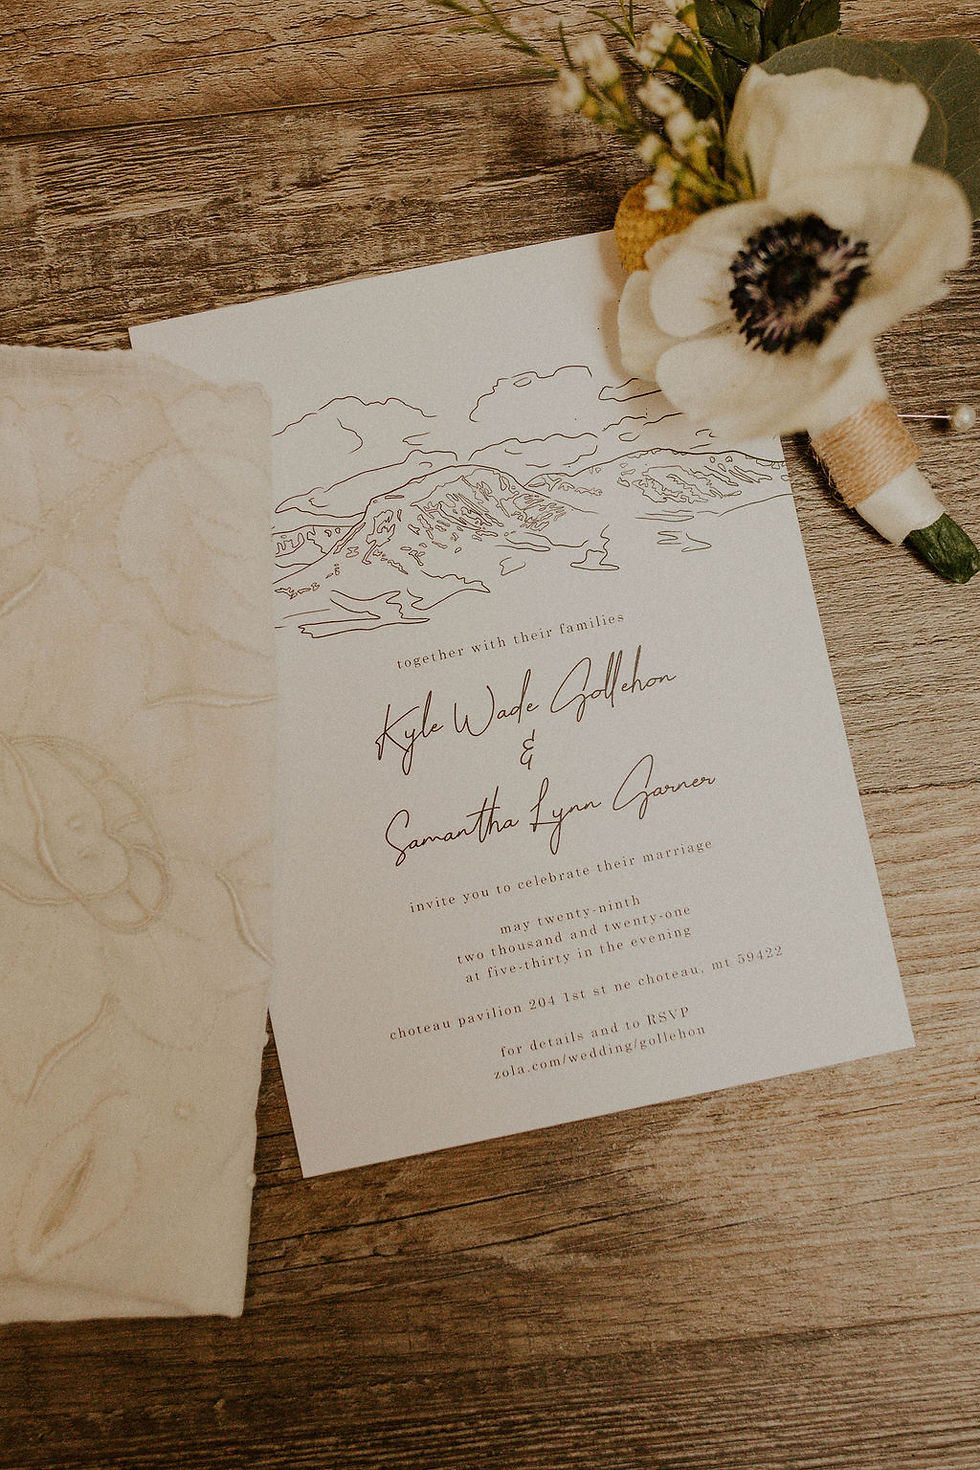 together with their families
Kyle Wade Gollehon
&
Samantha Lynn Garner
invite you to celebrate their marriage
may twenty-ninth
two thousand and twenty-one
at five-thirty in the evening
choteau pavilion 204 1st st ne choteau, mt 59422
for details and to RSVP
zola.com/wedding/gollehon